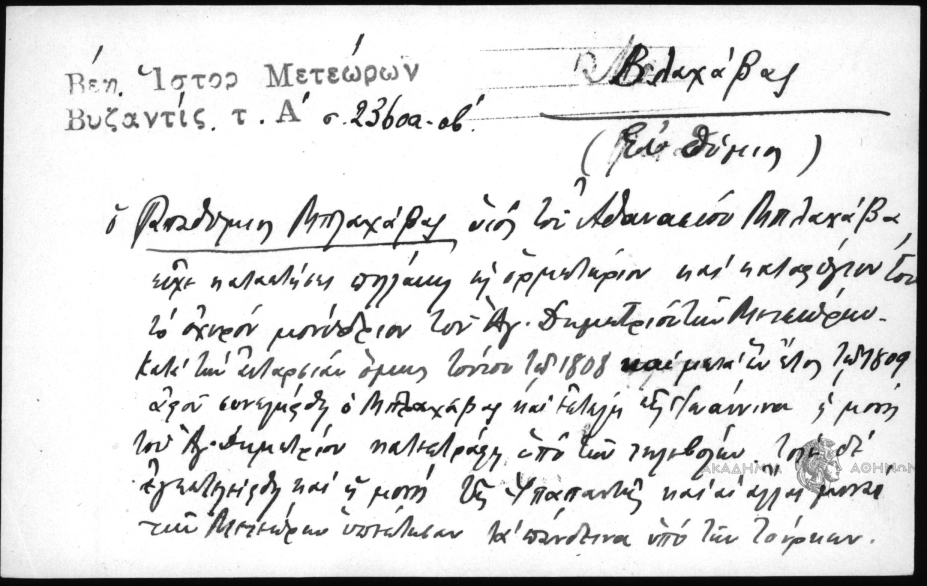 Βέη. Ἱστορ Μετεώρων
Βυζαντίς. τ. Α΄ σ. 236οα-οβ΄.
Βλαχάβας
(Εὐθύμιος)
ὁ Παπαθύμιος Μπλαχάβας υἱὸς τοῦ Ἀθανασίου Μπλαχάβα
εἶχε καταστήσει πολλάκις ὡς ὁρμητήριον καὶ καταφύγιον του
τὸ ὀχυρόν μονύδριον τοῦ Ἁγ. Δημητρίου τῶν Μετεώρων.
Κατὰ τὴν ἀνταρσίαν ὅμως τούτου τῷ 1808 καὶ μετὰ ἓν ἔτος τῷ 1809
ἀφοῦ συνελήφθη ὁ Μπλαχάβας καὶ ἐστάλη εἰς Ἰωάννινα ἡ μονή
τοῦ Ἁγ. Δημητρίου κατεστράφη ὑπὸ τῶν τηλεβόλων τότε δὲ
ἐγκατελείφθη καὶ ἡ μονή τῆς Ὑπαπαντῆς καὶ αἱ ἄλλαι μοναί
τῶν Μετεώρων ὑπέστησαν τὰ πάνδεινα ὑπό τῶν Τούρκων.
ΑΚΑΔΗΜΙΑ ΑΘΗΝΩΝ